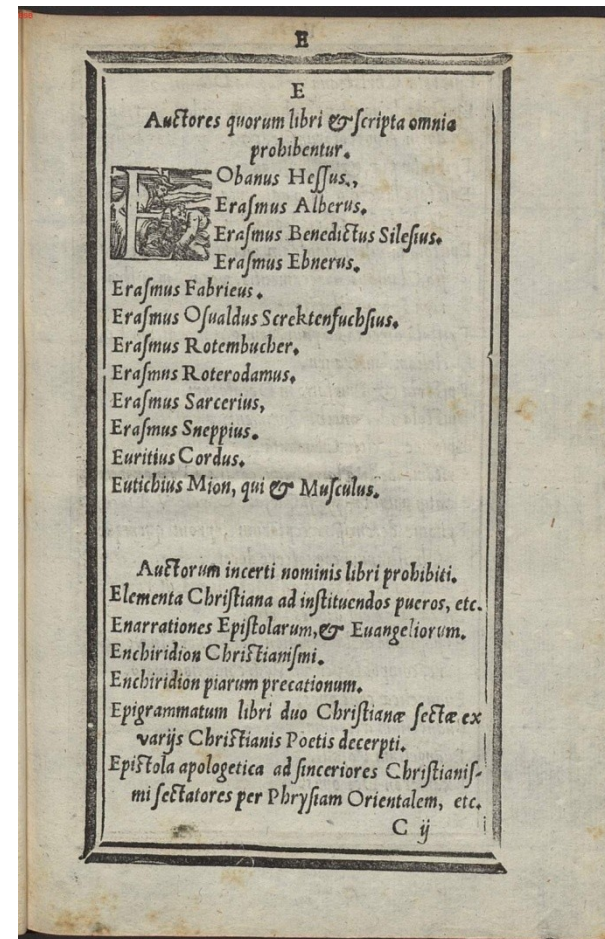 E
E
Auctores quorum libri & ſcripta omnia
prohibentur.
EObanus Heſſus.,
Eraſmus Alberus.
Eraſmus Benedictus Sileſius.
Eraſmus Ebnerus.
Eraſmus Fabrieus.
Eraſmus Oſualdus Screktenfuchſius.
Eraſmus Rotembucher.
Eraſmns Roterodamus.
Eraſmus Sarcerius,
Eraſmus Sneppius.
Euritius Cordus.
Eutichius Mion, qui & Muſculus.
Auctorum incerti nominis libri prohibiti.
Elementa Chriſtiana ad inſtituendos pueros, etc.
Enarrationes Epiſtolarum, & Euangeliorum.
Enchiridion Chriſtianiſmi.
Enchiridion piarum precationum.
Epigrammatum libri duo Chriſtianæ ſectæ ex
varijs Chriſtianis Poetis decerpti.
Epiſtola apologetica ad ſinceriores Chriſtianiſ-
mi ſectatores per Phryſiam Orientalem, etc.
C ij